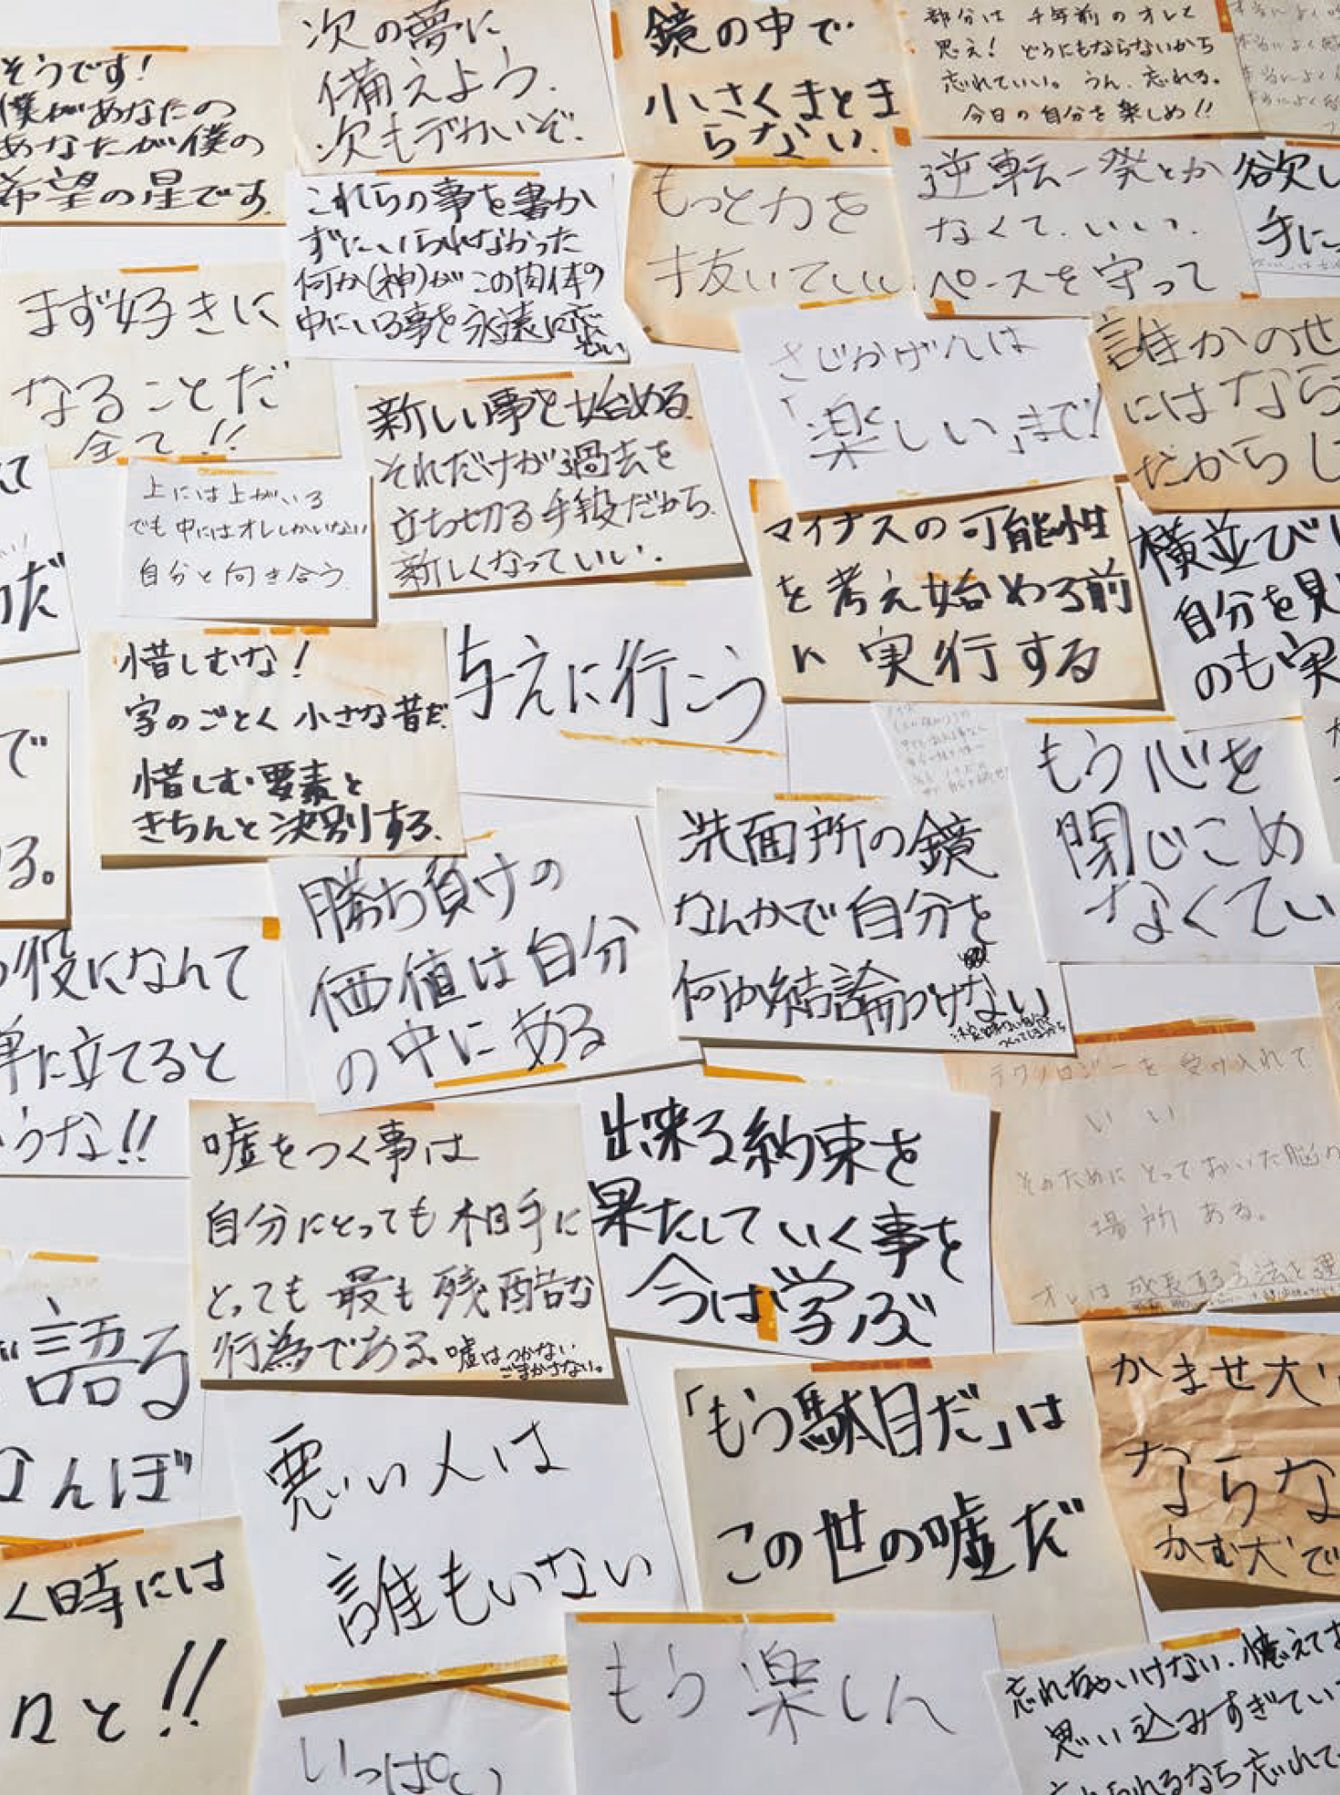 そうです!
僕があなたの
あなたが僕の
希望の星です
次の夢に
備えよう.
次もデカいぞ.
鏡の中で
小さくまとま
らない.
部分は 千年前のオレと
思え! どうにもならないから
忘れていい。うん、忘れる。
今日の自分を楽しめ!!
これらの事を書か
ずにいられなかった
何か(神)がこの肉体の
中にいる事を永遠に
もっと力を
抜いていい
逆転一発とか
なくて.いい.
ペースを守って
欲し
手に
まず好きに
なることだ
全て!!
新しい事を始める.
それだけが過去を
立ち切る手段だから.
新しくなっていい.
さじかげんは
「楽しい」まで!
誰かのせ
にはなら
だからし
上には上がいる
でも中にはオレしかいない
自分と向き合う
マイナスの可能性
を考え始める前
に実行する
横並び
自分を見
のも実
惜しむな!
字のごとく小さな昔だ.
惜しむ要素と
きちんと決別する.
与えに行こう
で
る。
もう心を
閉じこめ
なくてい
洗面所の鏡
なんかで自分を
何か結論づけない
勝ち負けの
価値は自分
の中にある
役になんて
に立てると
うな!!
テクノロジーを受け入れて
いい
そのためにとっておいた脳の
場所ある。
オレは成長する方法を
嘘をつく事は
自分にとっても相手に
とっても最も残酷な
行為である。嘘はつかない
ごまかさない。
出来る約束を
果たしていく事を
今は学ぶ
語る
なんぼ
悪い人は
誰もいない
「もう駄目だ」は
この世の嘘だ
かませ犬
ならな
かむ犬で
く時には
ロと!!
いっぱい
もう楽しん
忘れちゃいけない.憶えてお
思い込みすぎてい